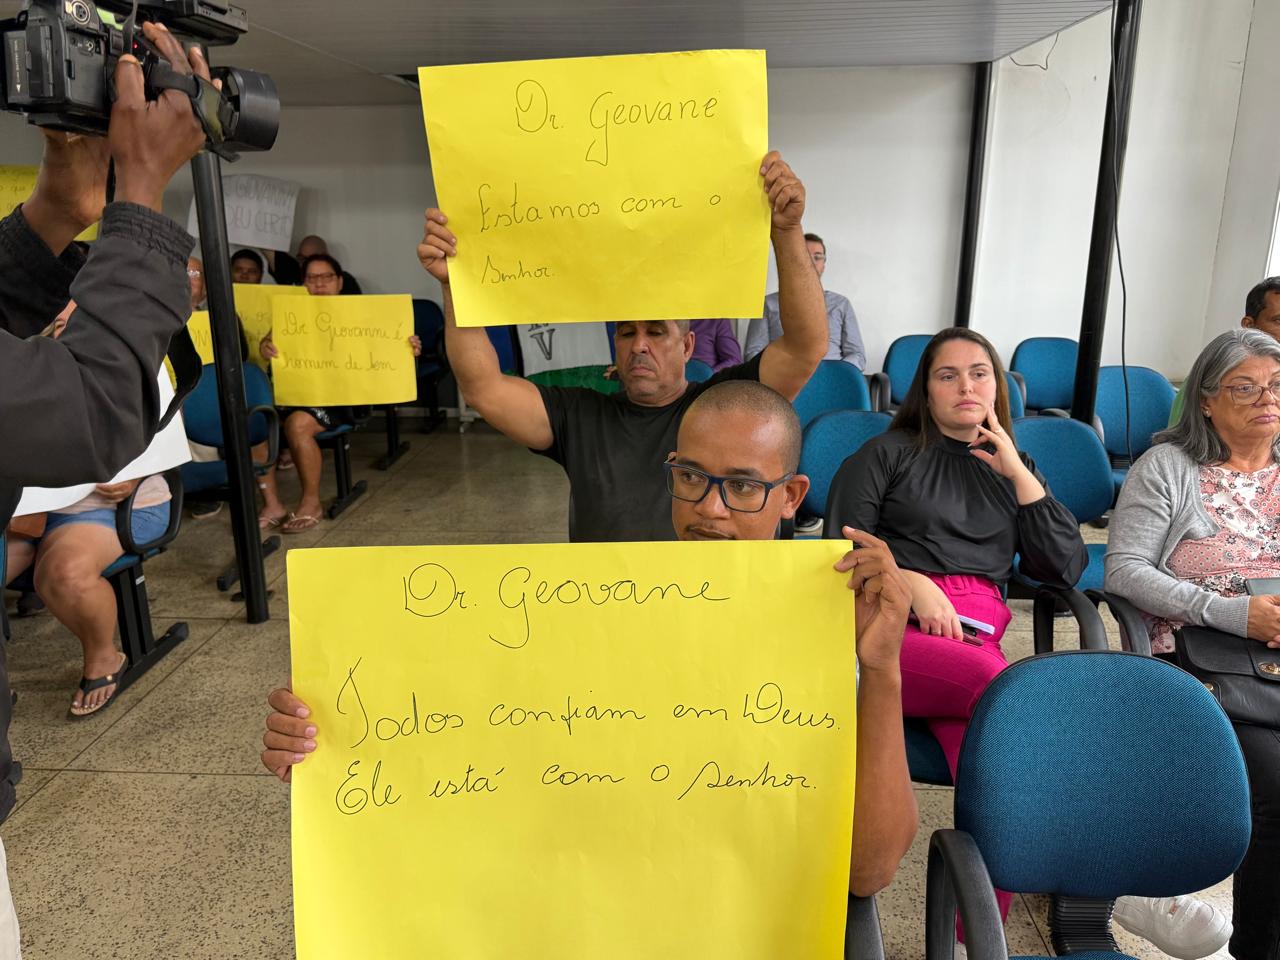 Dr. Geovane
Estamos com o
Senhor.
Dr Giovanni é
homem de bem
Dr. Geovane
Todos confiam em Deus.
Ele está com o senhor.